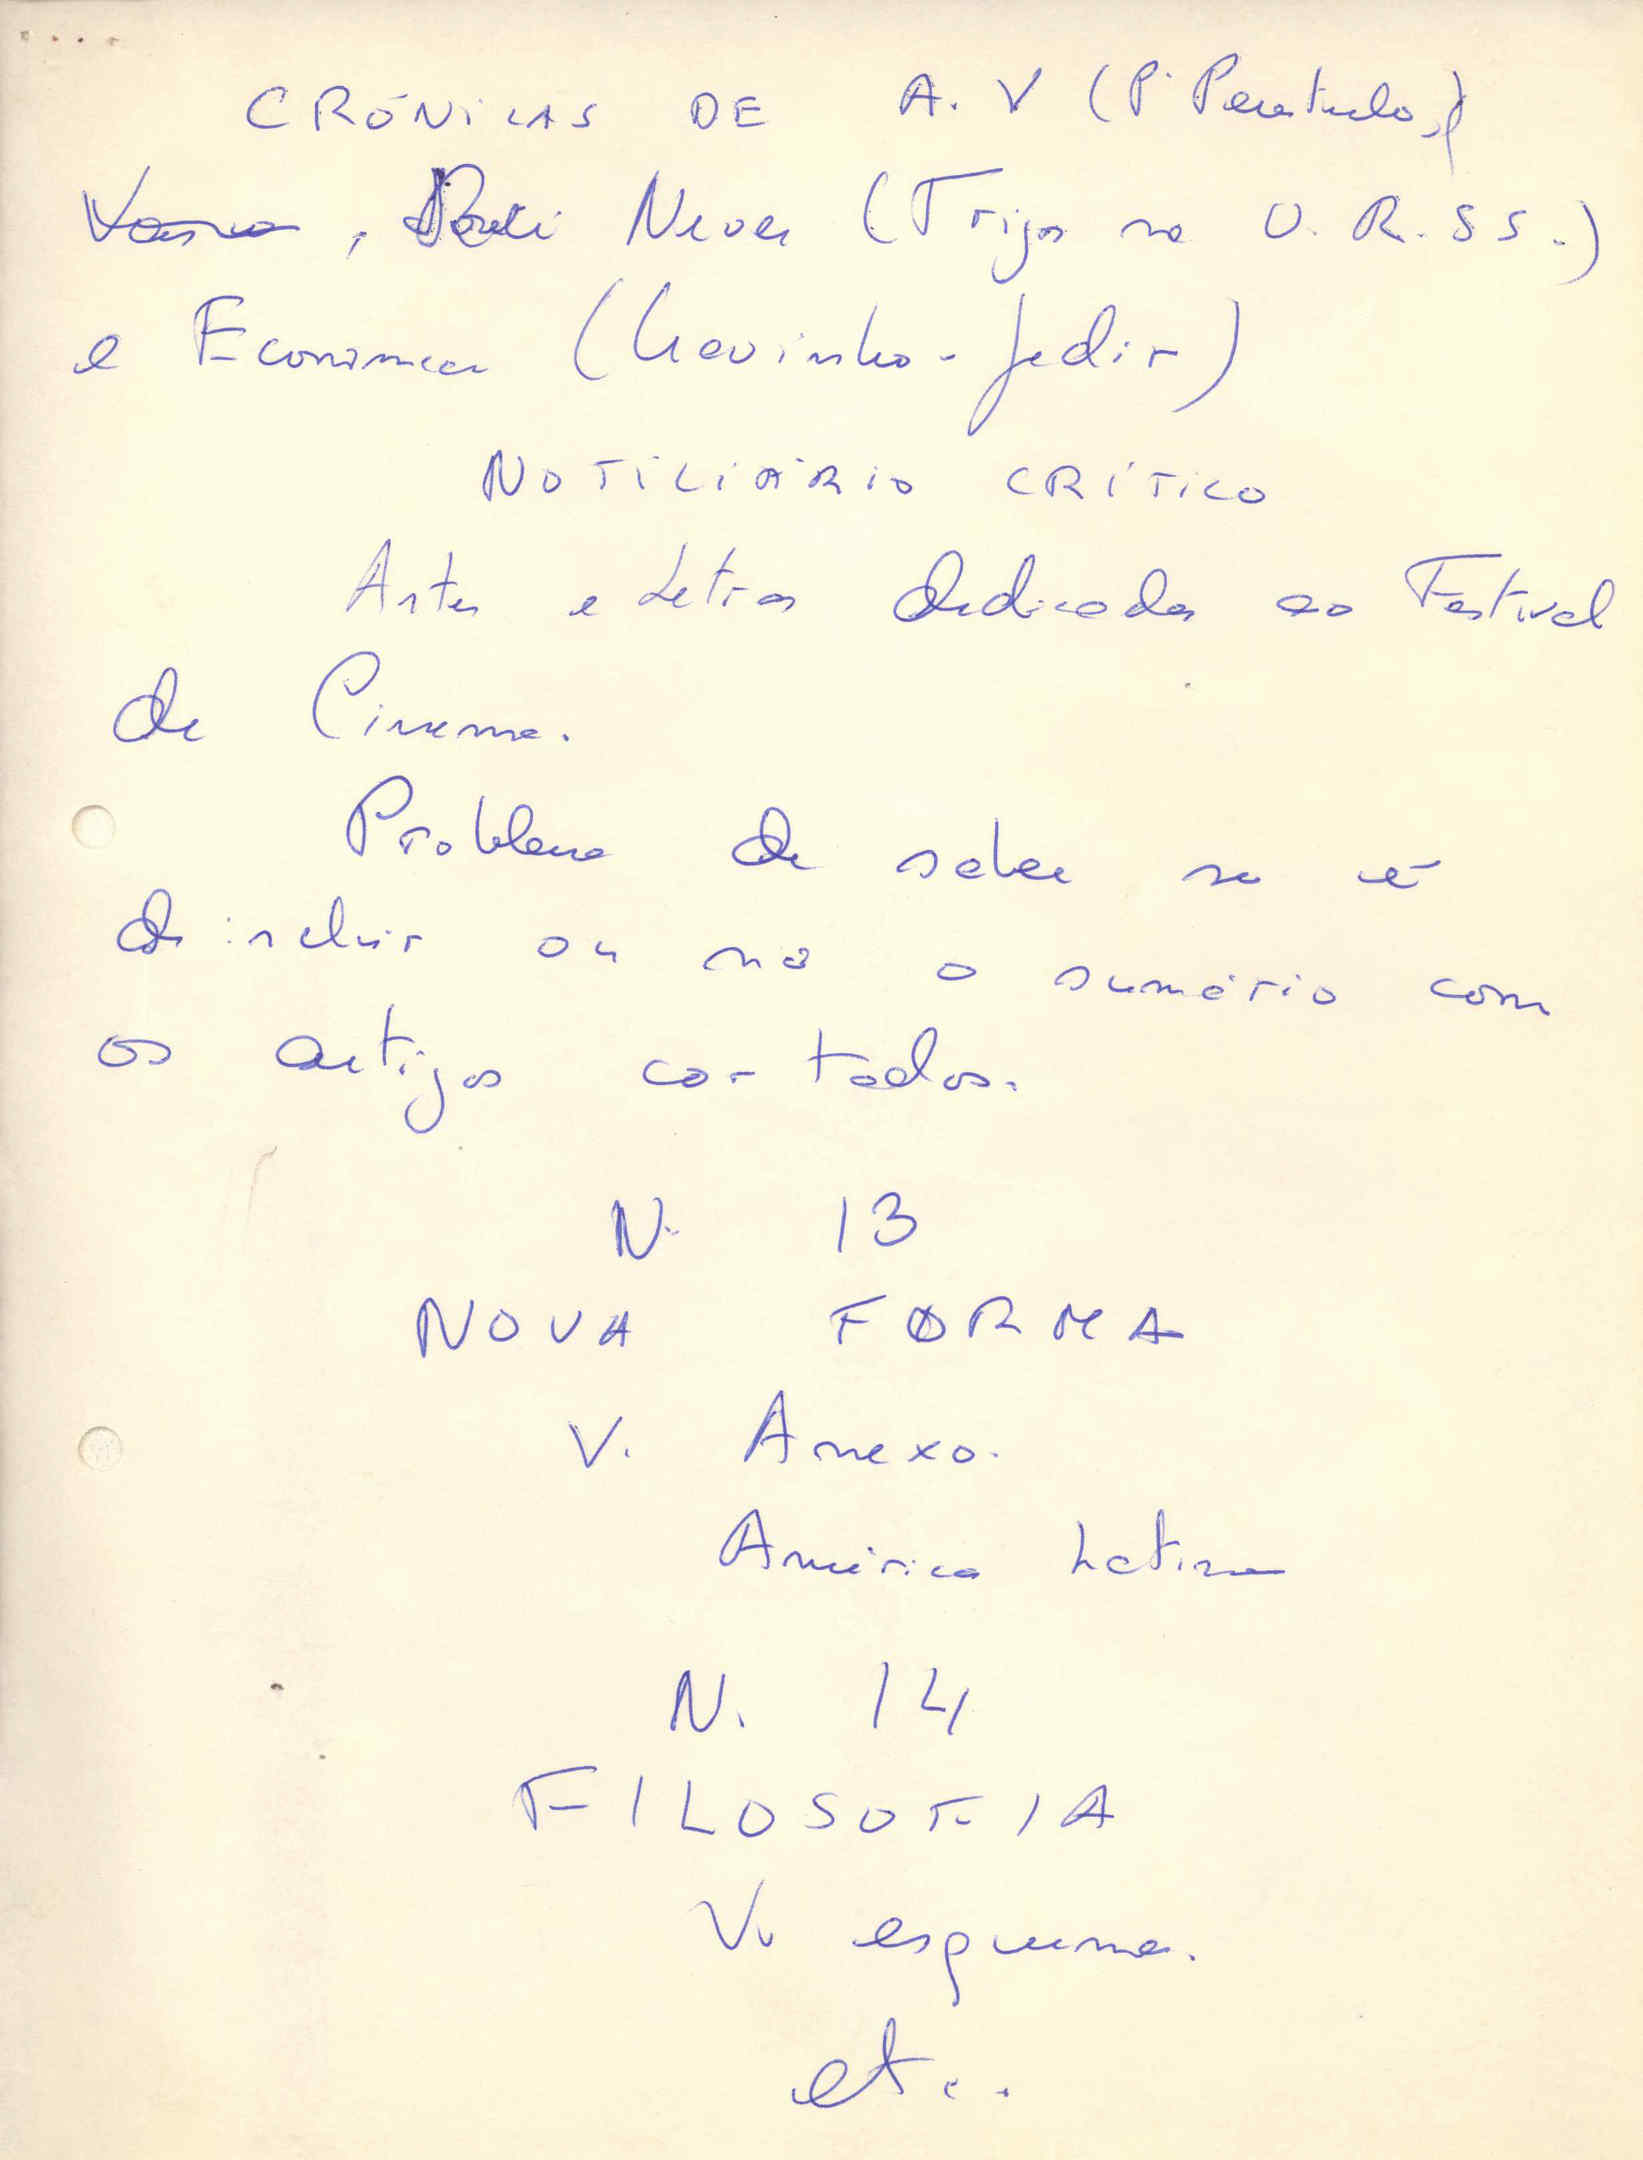 CRÓNICAS DE A. V (P.
Neves (Trigo na U.R.S.S.)
e Economica (
NOTICIÁRIO CRÍTICO
Artes e Letras dedicadas ao Festival
de Cinema.
Problema de saber se é
de incluir ou não o sumário com
os artigos cortados.
N. 13
NOVA FORMA
V. Anexo.
América Latina
N. 14
FILOSOFIA
V. esquema.
etc.